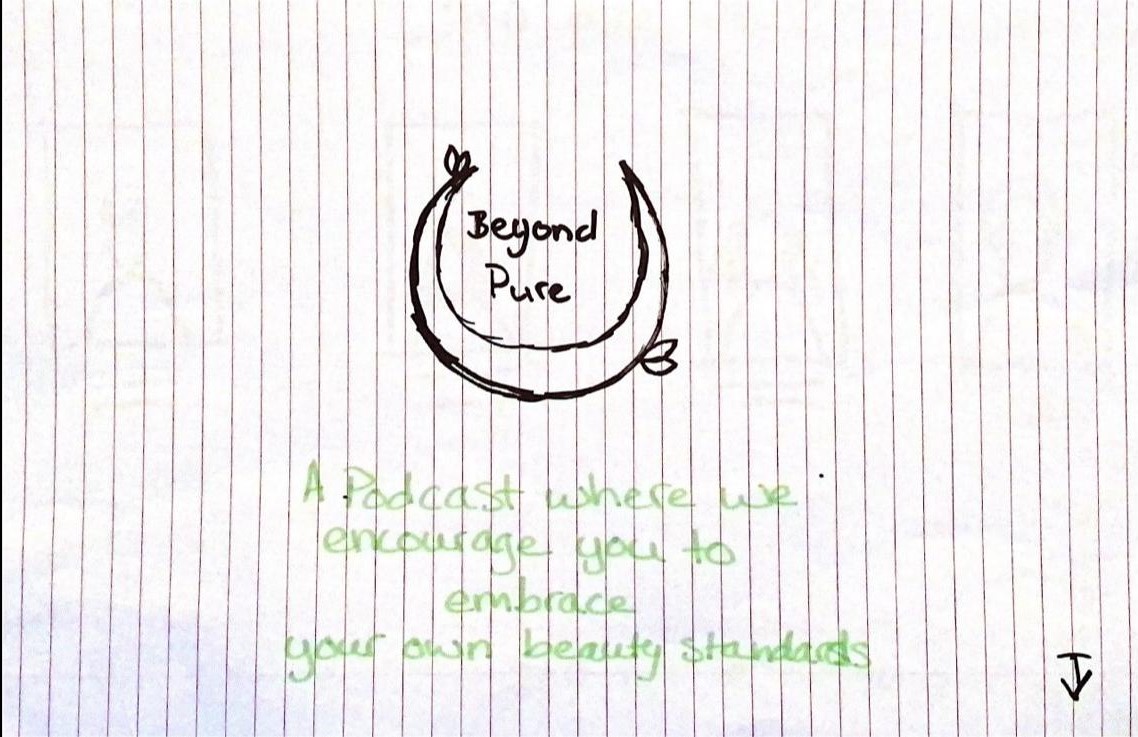 Beyond
Pure
A Podcast where we
encourage you to
embrace
your own beauty standards